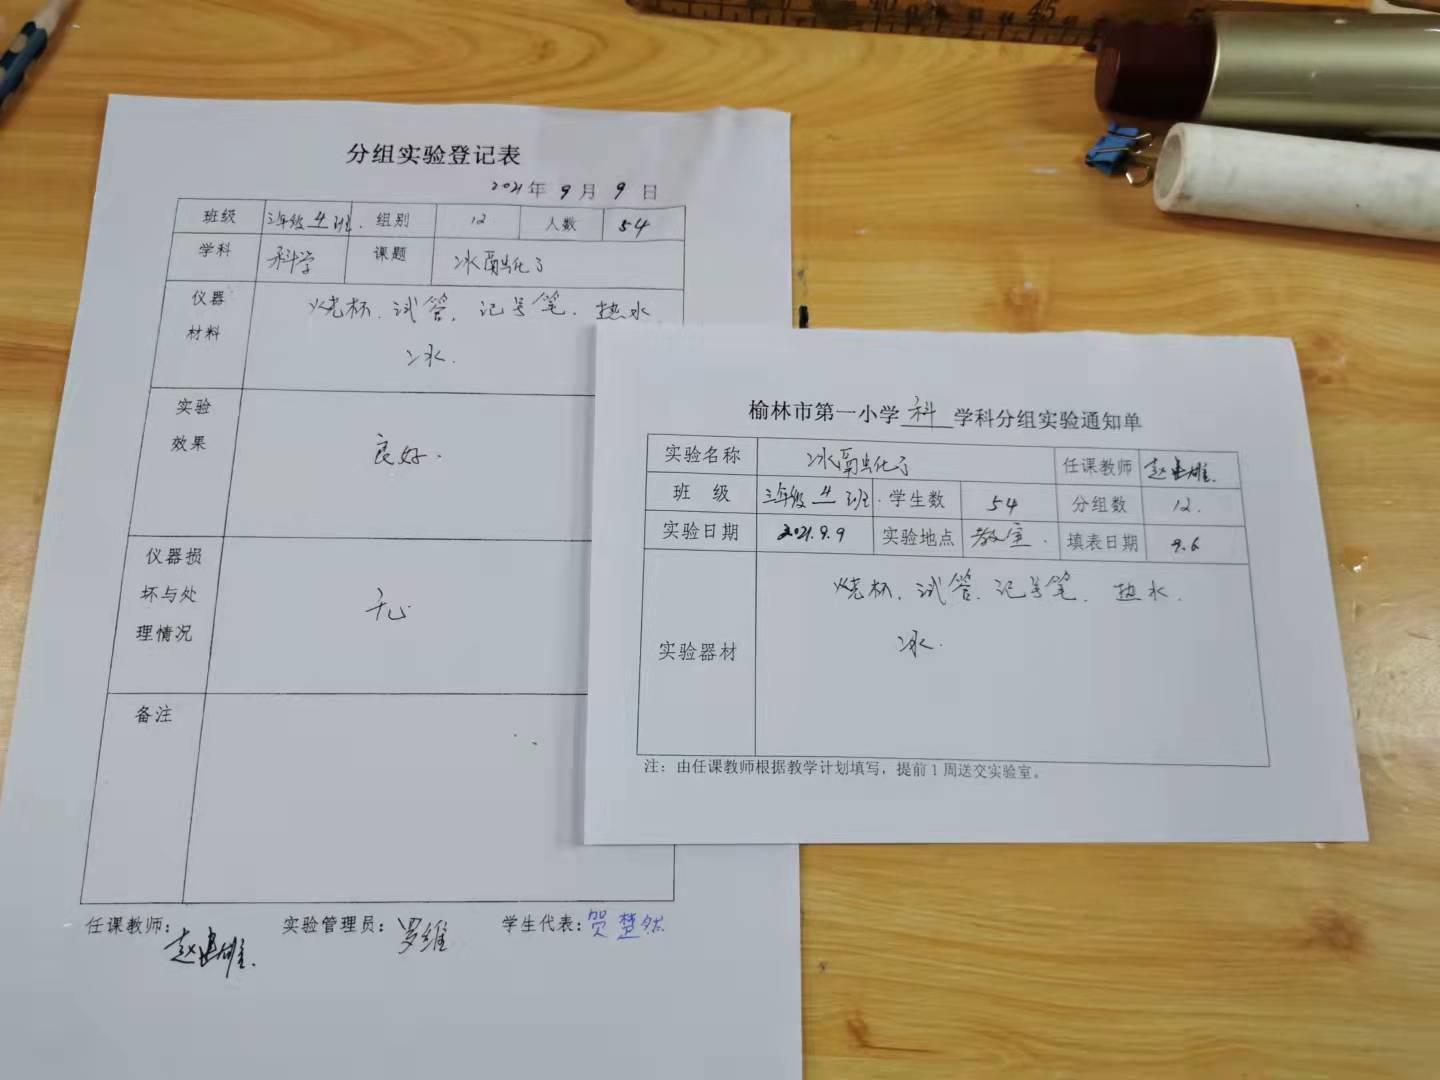 分组实验登记表
2021年 9月 9日
班级 三年级 4 班. 组别 12 人数 54
学科 科学 课题 冰融化了
仪器 烧杯. 试管. 记号笔. 热水
材料 冰.
实验
效果 良好.
仪器损
坏与处 无
理情况
备注
任课教师: 赵建雄. 实验管理员: 罗维 学生代表: 贺楚然
榆林市第一小学 科 学科分组实验通知单
实验名称 冰融化了 任课教师 赵建雄.
班 级 三年级 4 班. 学生数 54 分组数 12.
实验日期 2021.9.9 实验地点 教室. 填表日期 9.6
烧杯. 试管. 记号笔. 热水.
实验器材 冰.
注：由任课教师根据教学计划填写，提前1周送交实验室。